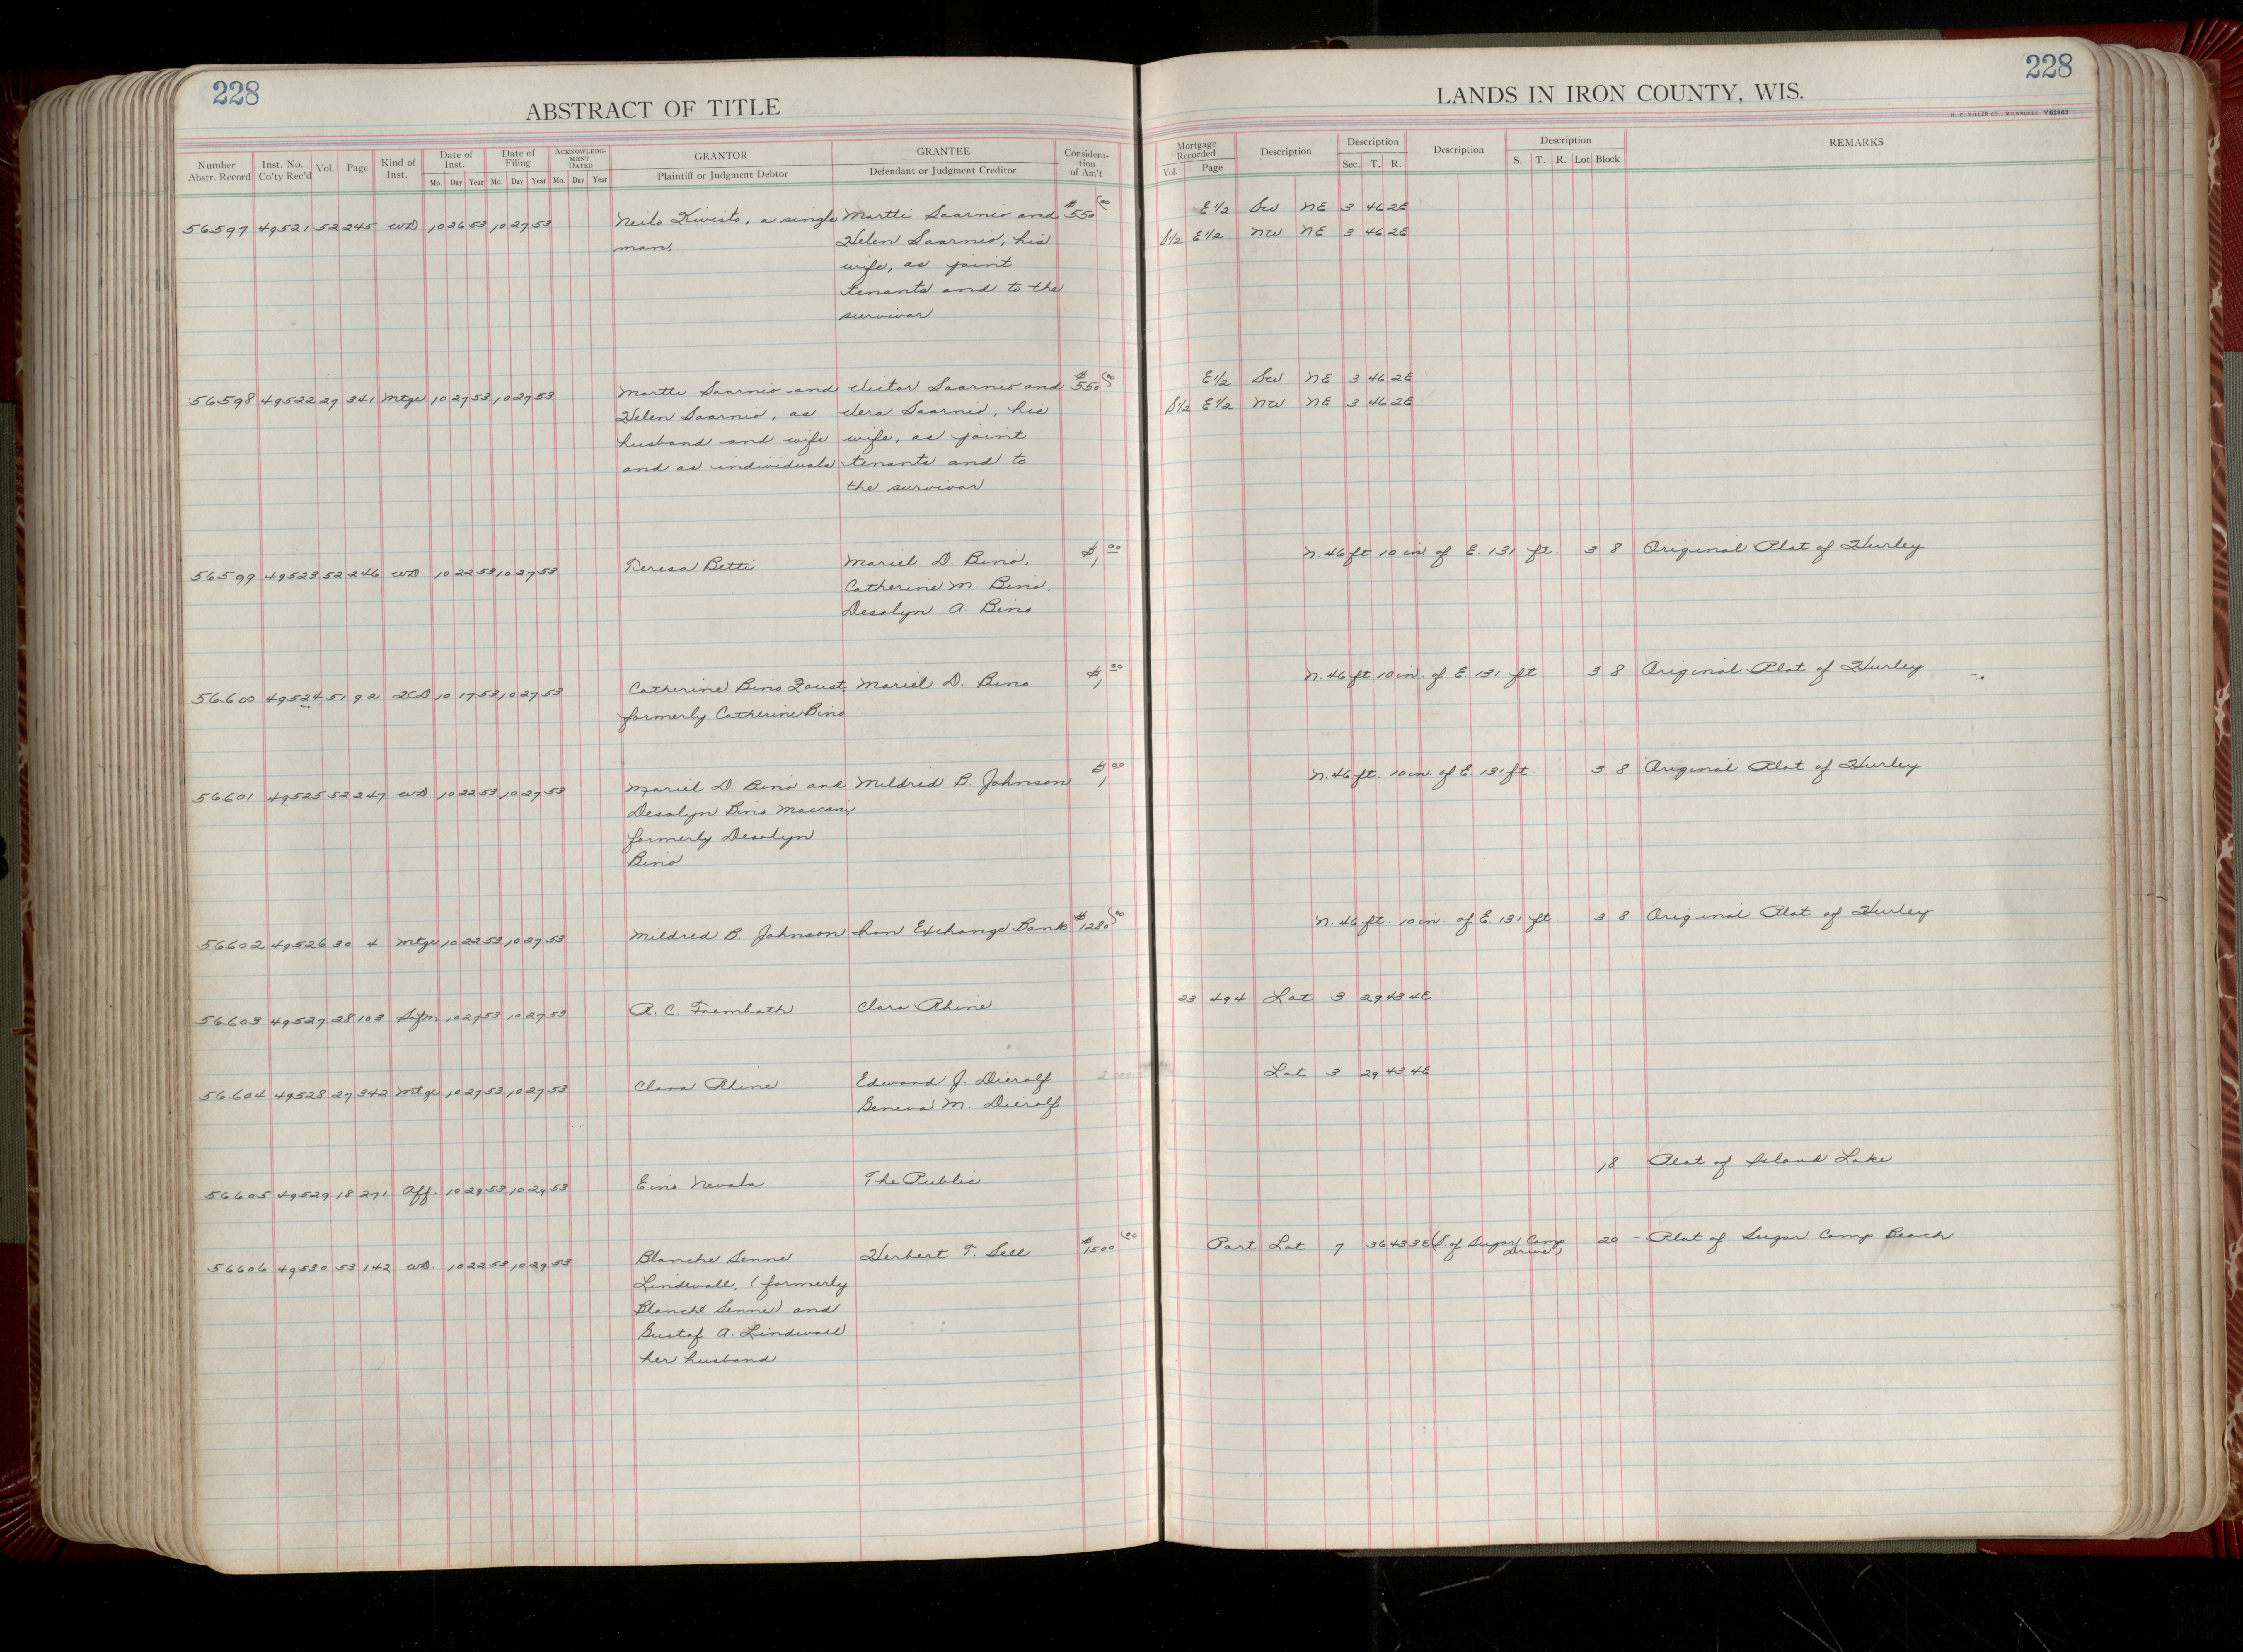 228
228
ABSTRACT OF TITLE
LANDS IN IRON COUNTY, WIS.
H. C. MILLER CO., MILWAUKEE Y62963
Number Abstr. Record Inst. No. Co'ty Rec'd Vol. Page Kind of Inst. Date of Inst. Mo. Day Year Date of Filing Mo. Day Year ACKNOWLEDG-MENT DATED Mo. Day Year GRANTOR Plaintiff or Judgment Debtor GRANTEE Defendant or Judgment Creditor Considera-tion of Am't
Mortgage Recorded Vol. Page Description Description Sec. T. R. Description Description S. T. R. Lot Block REMARKS
56597 49521 52 245 WD 10 26 53 10 27 53 Neilo Kivisto, a single Martti Saarnio and $550 00 E1/2 SW NE 3 46 2E
man. Helen Saarnio, his S1/2 E1/2 NW NE 3 46 2E
wife, as joint
tenants and to the
survivor
56598 49522 27 341 Mtge 10 27 53 10 27 53 Martti Saarnio and Victor Saarnio and $550 00 E1/2 SW NE 3 46 2E
Helen Saarnio, as Vera Saarnio, his S1/2 E1/2 NW NE 3 46 2E
husband and wife wife, as joint
and as individuals tenants and to
the survivor
56599 49523 52 246 WD 10 22 53 10 27 53 Teresa Betti Mariel D. Bino, $1 00 N. 46 ft 10 in of E. 131 ft. 3 8 Original Plat of Hurley
Catherine M. Bino,
Desolyn A. Bino
56600 49524 51 92 QCD 10 17 53 10 27 53 Catherine Bino Foust, Mariel D. Bino $1 00 N. 46 ft 10 in. of E. 131 ft 3 8 Original Plat of Hurley
formerly Catherine Bino
56601 49525 52 247 WD 10 22 53 10 27 53 Mariel D. Bino and Mildred B. Johnson $1 00 N. 46 ft. 10 in. of E. 131 ft. 3 8 Original Plat of Hurley
Desolyn Bino Maccani,
formerly Desolyn
Bino
56602 49526 30 4 Mtge 10 22 53 10 27 53 Mildred B. Johnson Iron Exchange Bank $1280 00 N. 46 ft. 10 in. of E. 131 ft 3 8 Original Plat of Hurley
56603 49527 28 103 Satfn 10 27 53 10 27 53 A. C. Trembath Clara Rhine 23 494 Lot 3 29 43 4E
56604 49528 27 342 Mtge 10 27 53 10 27 53 Clara Rhine Edward J. Dierolf Lot 3 29 43 4E
Geneva M. Dierolf
56605 49529 18 271 Aff. 10 29 53 10 29 53 Eino Nevala The Public 18 Plat of Island Lake
56606 49530 53 142 WD. 10 22 53 10 29 53 Blanche Senne Herbert T. Sell $1500 00 Part Lot 7 36 43 3E (S. of Sugar Camp Drive) 20 - Plat of Sugar Camp Beach
Lindwall, (formerly
Blanche Senne) and
Gustaf A. Lindwall
her husband